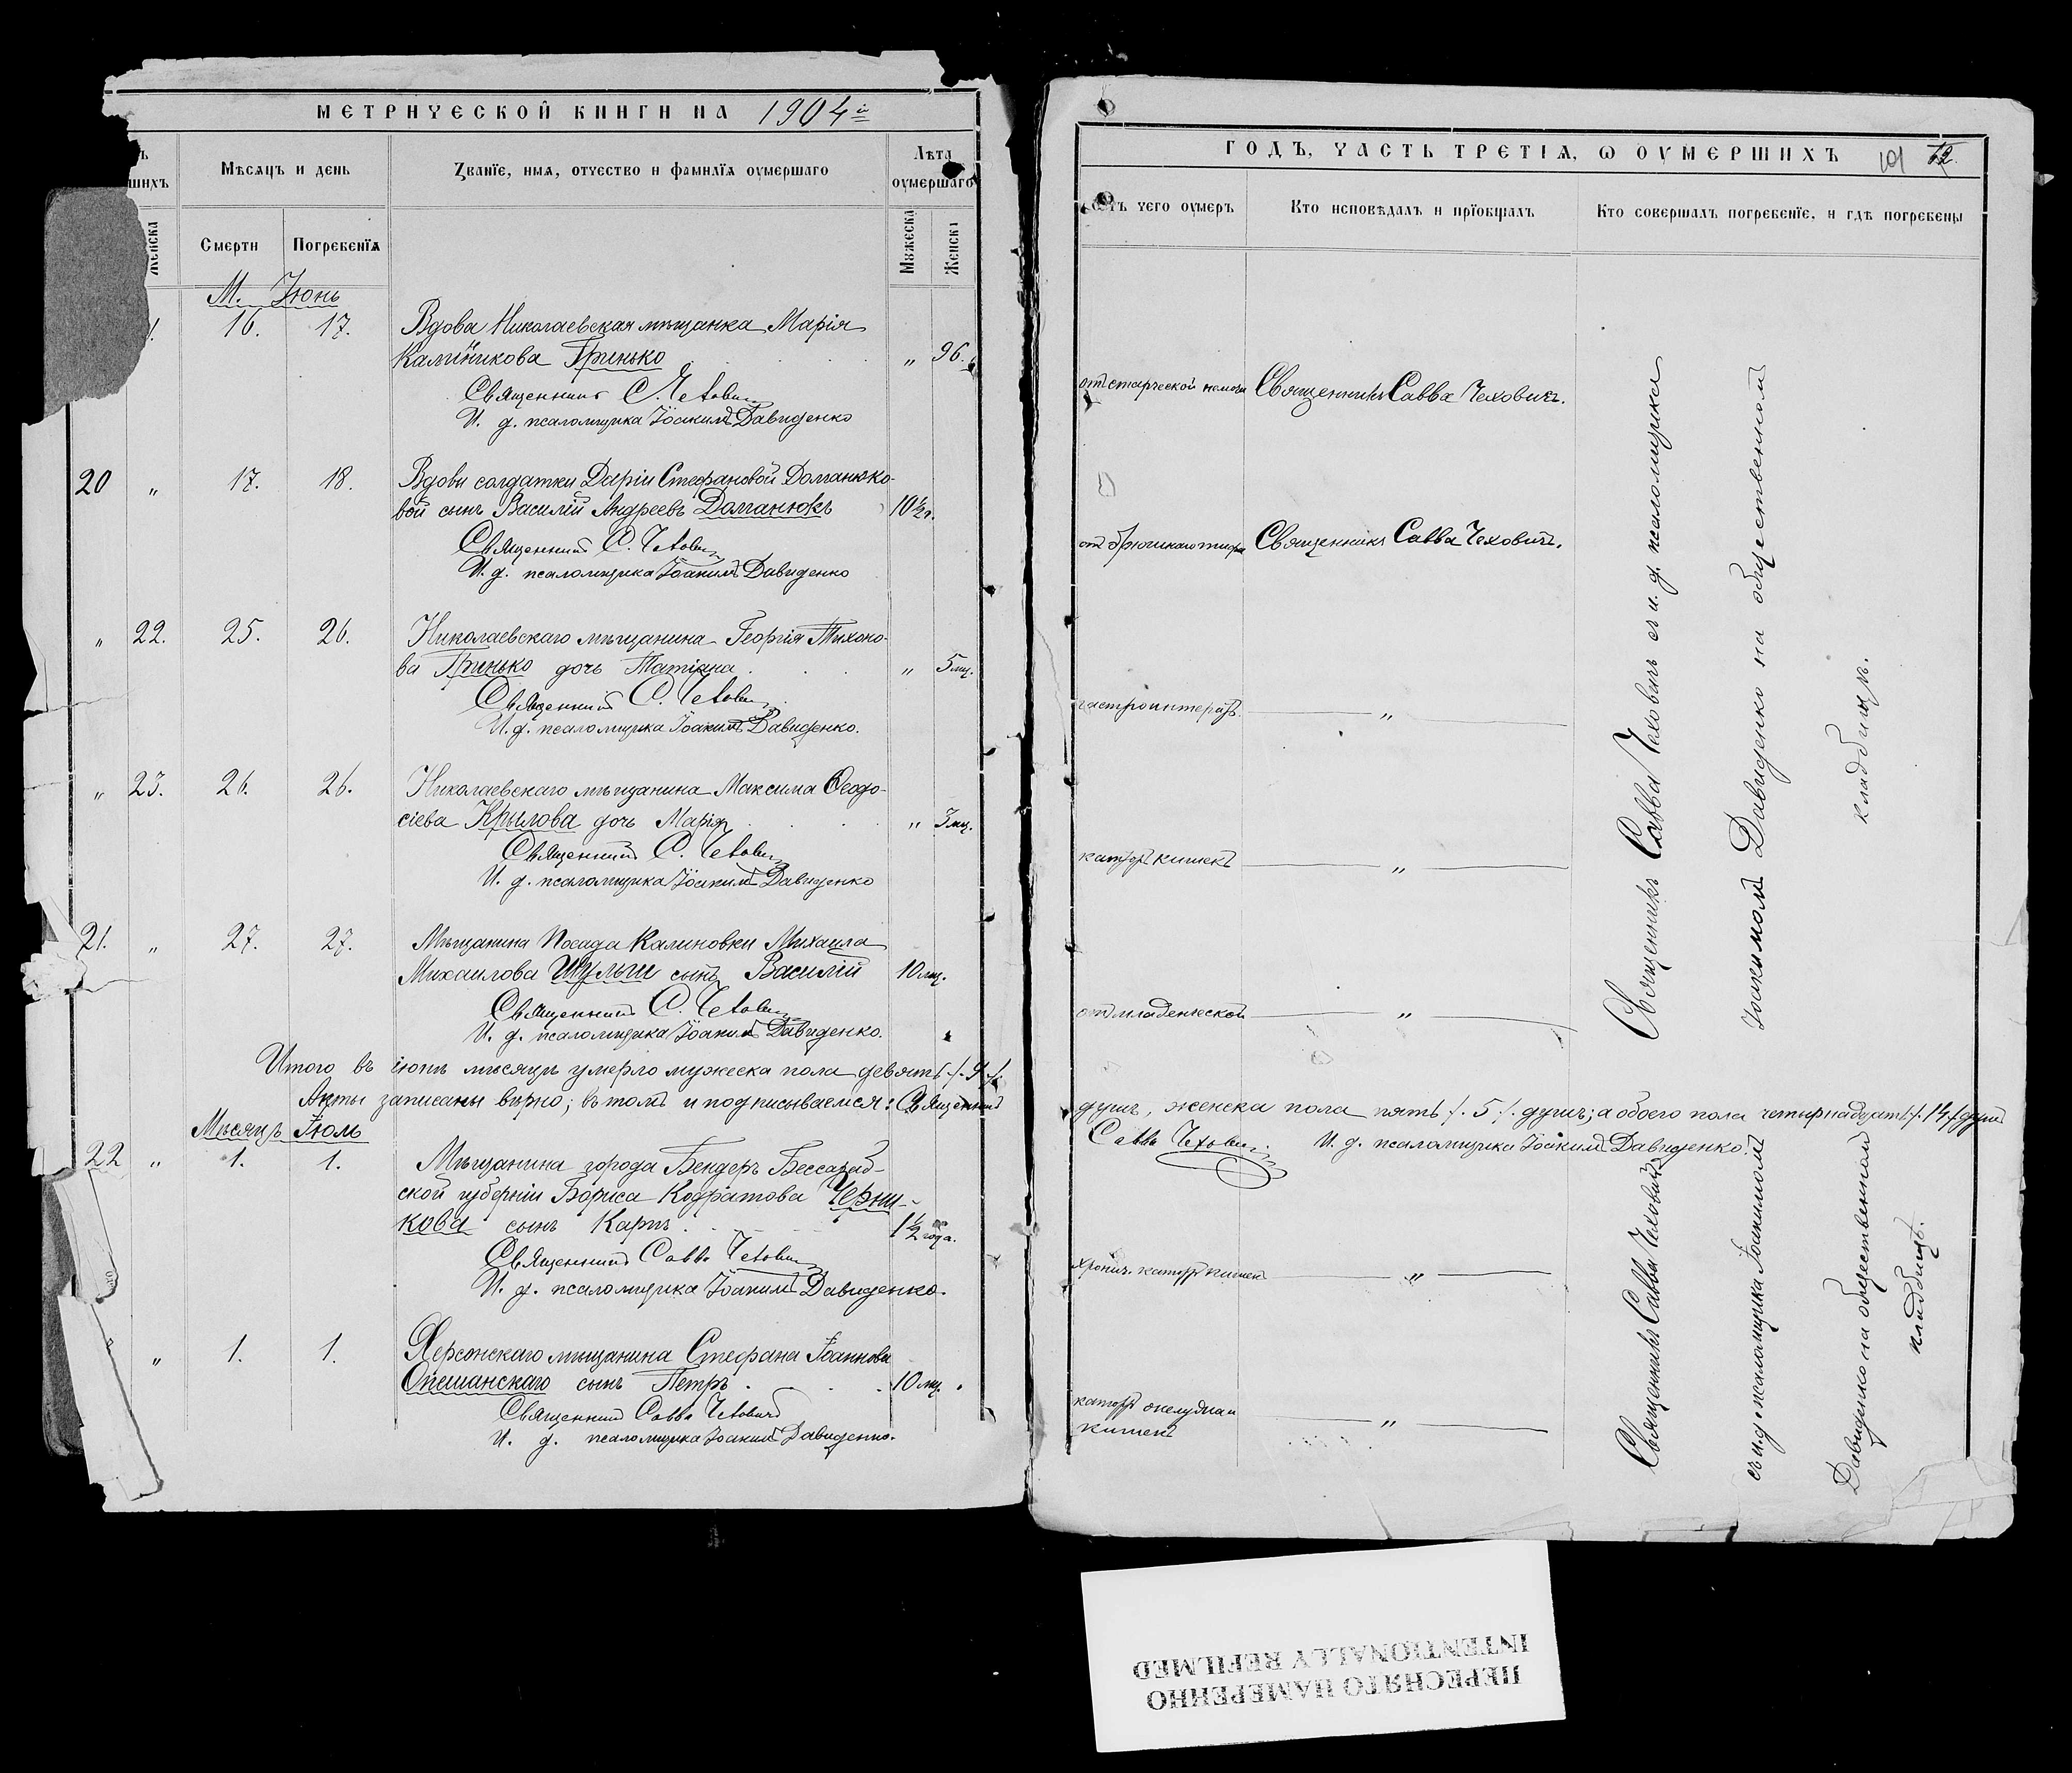 МЕТРИЧЕСКОЙ КНИГИ НА 1904й
шихъ
Мѣсяцъ и день
Званїе, имя, отчество и фамилїя оумершаго
Лѣта оумершаго
Женска
Смерти
Погребенїя
Мужеска
Женска
М. Іюнь
16. 17. Вдова Николаевская мѣщанка Марія
Калиникова Гринько . . . „ 96.
Священникъ С. Чеховичъ
И. д. псаломщика Іоакимъ Давиденко
20 „ 17. 18. Вдовы солдатки Даріи Стефановой Долганюко-
вой сынъ Василій Андреевъ Долганюкъ 10½ г.
Священникъ С. Чеховичъ
И. д. псаломщика Іоакимъ Давиденко
„ 22. 25. 26. Николаевскаго мѣщанина Георгія Тихоно-
ва Гринько дочь Татіана . . . „ 5 мц.
Священникъ С. Чеховичъ
И. д. псаломщика Іоакимъ Давиденко.
„ 23. 26. 26. Николаевскаго мѣщанина Максима Ѳеодо-
сіева Крылова дочь Марія . . . „ 3 мц.
Священникъ С. Чеховичъ
И. д. псаломщика Іоакимъ Давиденко
21. „ 27. 27. Мѣщанина посада Калиновки Михаила
Михаилова Шульги сынъ Василій 10 мц.
Священникъ С. Чеховичъ
И. д. псаломщика Іоакимъ Давиденко.
Итого въ іюнѣ мѣсяцѣ умерло мужеска пола девять ./. 9 ./.
Акты записаны вѣрно; въ томъ и подписываемся: Священникъ
Мѣсяцъ Іюль
22 „ 1. 1. Мѣщанина города Бендеръ Бессараб-
ской губерніи Бориса Кодратова Черни-
кова сынъ Карпъ . 1½ года.
Священникъ Савва Чеховичъ
И. д. псаломщика Іоакимъ Давиденко.
„ 1. 1. Херсонскаго мѣщанина Стефана Іоаннова
Опешанскаго сынъ Петръ . . . 10 мц.
Священникъ Савва Чеховичъ
И. д. псаломщика Іоакимъ Давиденко.
ГОДЪ, ЧАСТЬ ТРЕТІЯ, Ѡ ОУМЕРШИХЪ 101 62.
Отъ чего оумеръ
Кто исповѣдалъ и прїобщалъ
Кто совершалъ погребенїе, и гдѣ погребены
отъ старческой немощи Священникъ Савва Чеховичъ.
отъ брюшнаго тифа Священникъ Савва Чеховичъ.
гастроинтеритъ „
катарръ кишекъ „
отъ младенческой „
Священникъ Савва Чеховичъ съ и. д. псаломщика
Іоакимомъ Давиденко на общественномъ
кладбищѣ.
душъ, женска пола пять ./. 5 ./. душъ; а обоего пола четырнадцать ./. 14 ./. душъ
Савва Чеховичъ. И. д. псаломщика Іоакимъ Давиденко.
хронич. катарръ кишекъ „
катарръ желудка и
кишекъ „
Священникъ Савва Чеховичъ
съ и. д. псаломщика Іоакимомъ
Давиденко на общественномъ
кладбищѣ.
ПЕРЕСНЯТО НАМЕРЕННО
INTENTIONALLY REFILMED